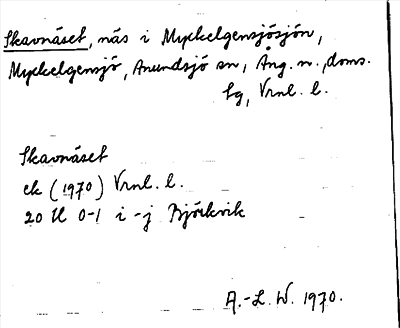 Skavnäset, näs i Myckelgensjösjön,
Myckelgensjö, Anundsjö sn, Ång. n., doms.
sg, Vrnl. l.
Skavnäset
ek (1970) Vrnl. l.
20 H 0-1 i-j Björkvik
A.-L. W. 1970.